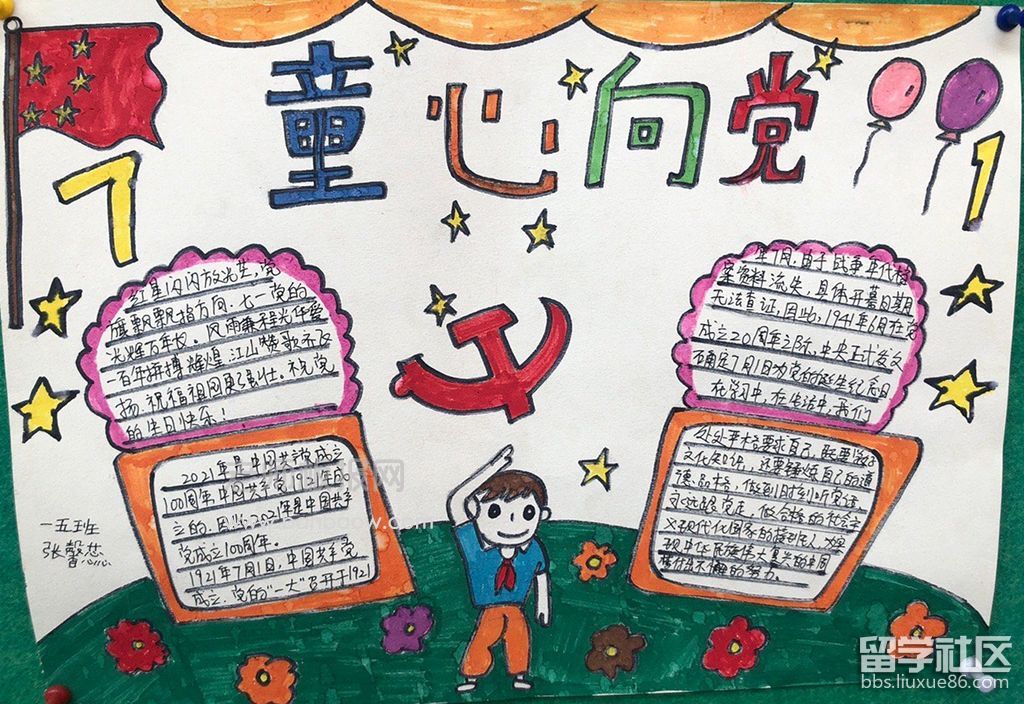 童心向党
7
1
红星闪闪放光芒,党
旗飘飘指方向.七一党的
光辉万年长。风雨兼程光华爱
百年拼搏辉煌.江山赞歌永飞
扬.祝福祖国更强壮.祝党
的生日快乐!
2021年是中国共产党成立
100周年.中国共产党1921年成
立的.因此2021年是中国共产
党成立100周年。
1921年7月1日,中国共产党
成立.党的“一大”召开于1921
年7月.由于战争年代档
案资料流失,具体开幕日期
无法查证,因此,1941年6月在党
成立20周年之际,中央正式发文
确定7月1日为党的诞生纪念日
在学习中,在生活中,我们
处处严格要求自己,既要学好
文化知识,还要锤炼自己的道
德品格,做到时刻听党话、
永远跟党走,做合格的社会主
义现代化国家的接班人,为实
现中华民族伟大复兴的中国
梦作出不懈的努力。
一五班
张馨
留学社区
bbs.liuxue86.com